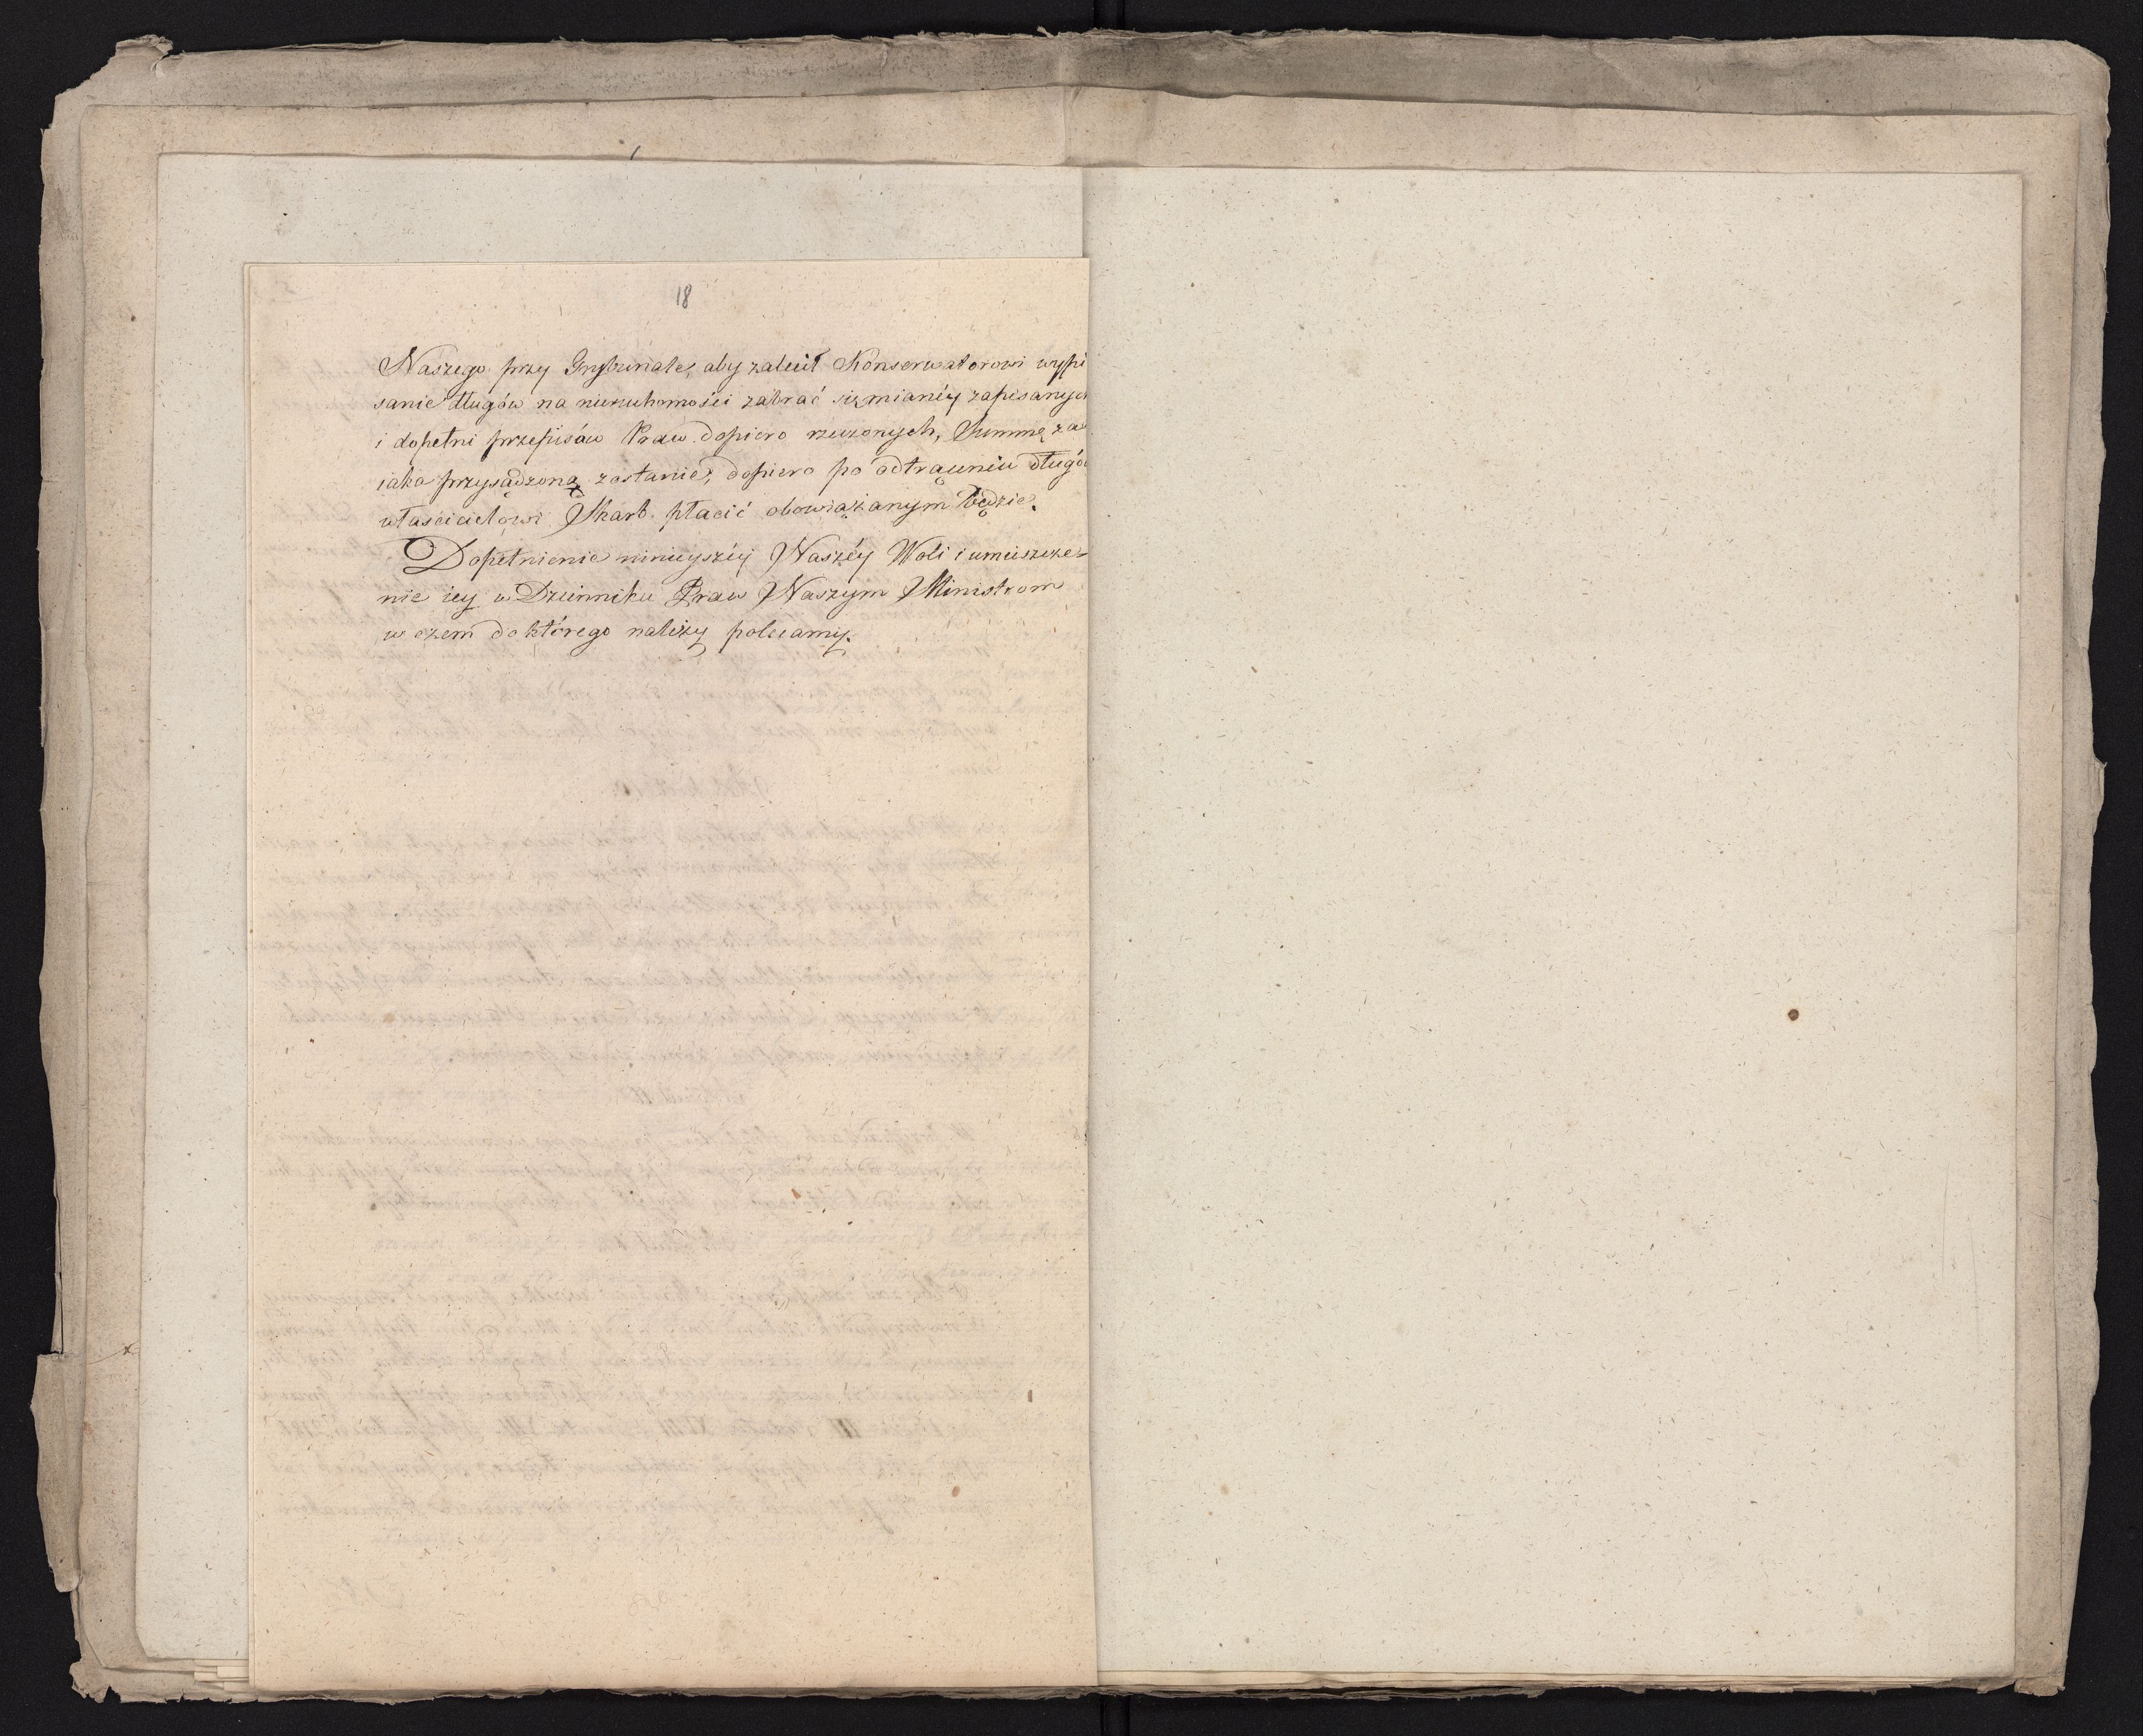 18
Naszego przy Trybunale, aby zalecił Konserwatorowi wypi
sanie długów na nieruchomości zabrać się mianéy zapisanych
i dopełni przepisów Praw dopiero rzeczonych, Summę zaś
iaka przysądzoną zostanie, dopiero po odtrąceniu długów
właścicielowi Skarb płacić obowiązanym będzie.
Dopełnienie ninieyszéy Naszéy Woli i umieszcze-
nie iey w Dzienniku Praw Naszym Ministrom
w czem do którego należy polecamy.